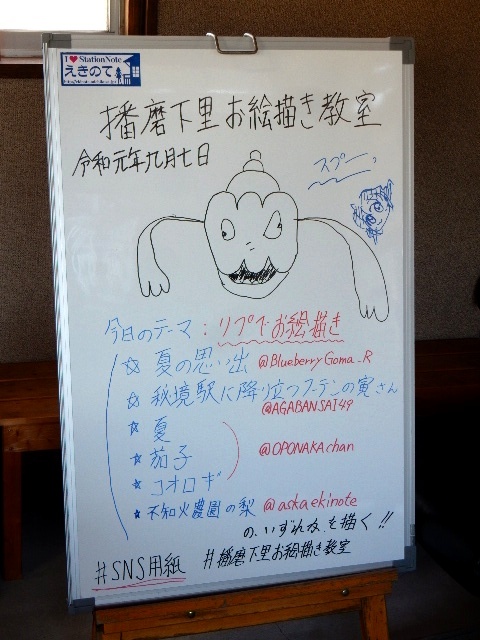 I ❤ StationNote
えきのて
播磨下里お絵描き教室
令和元年九月七日
スプー
今日のテーマ：リプでお絵描き
☆ 夏の思い出 @BlueberryGoma_R
☆ 秘境駅に降り立つフーテンの寅さん
@AGABANSAI49
☆ 夏
☆ 茄子 @OPONAKAchan
☆ コオロギ
☆ 不知火農園の梨 @askaekinote
の、いずれかを描く!!
#SNS用紙 #播磨下里お絵描き教室